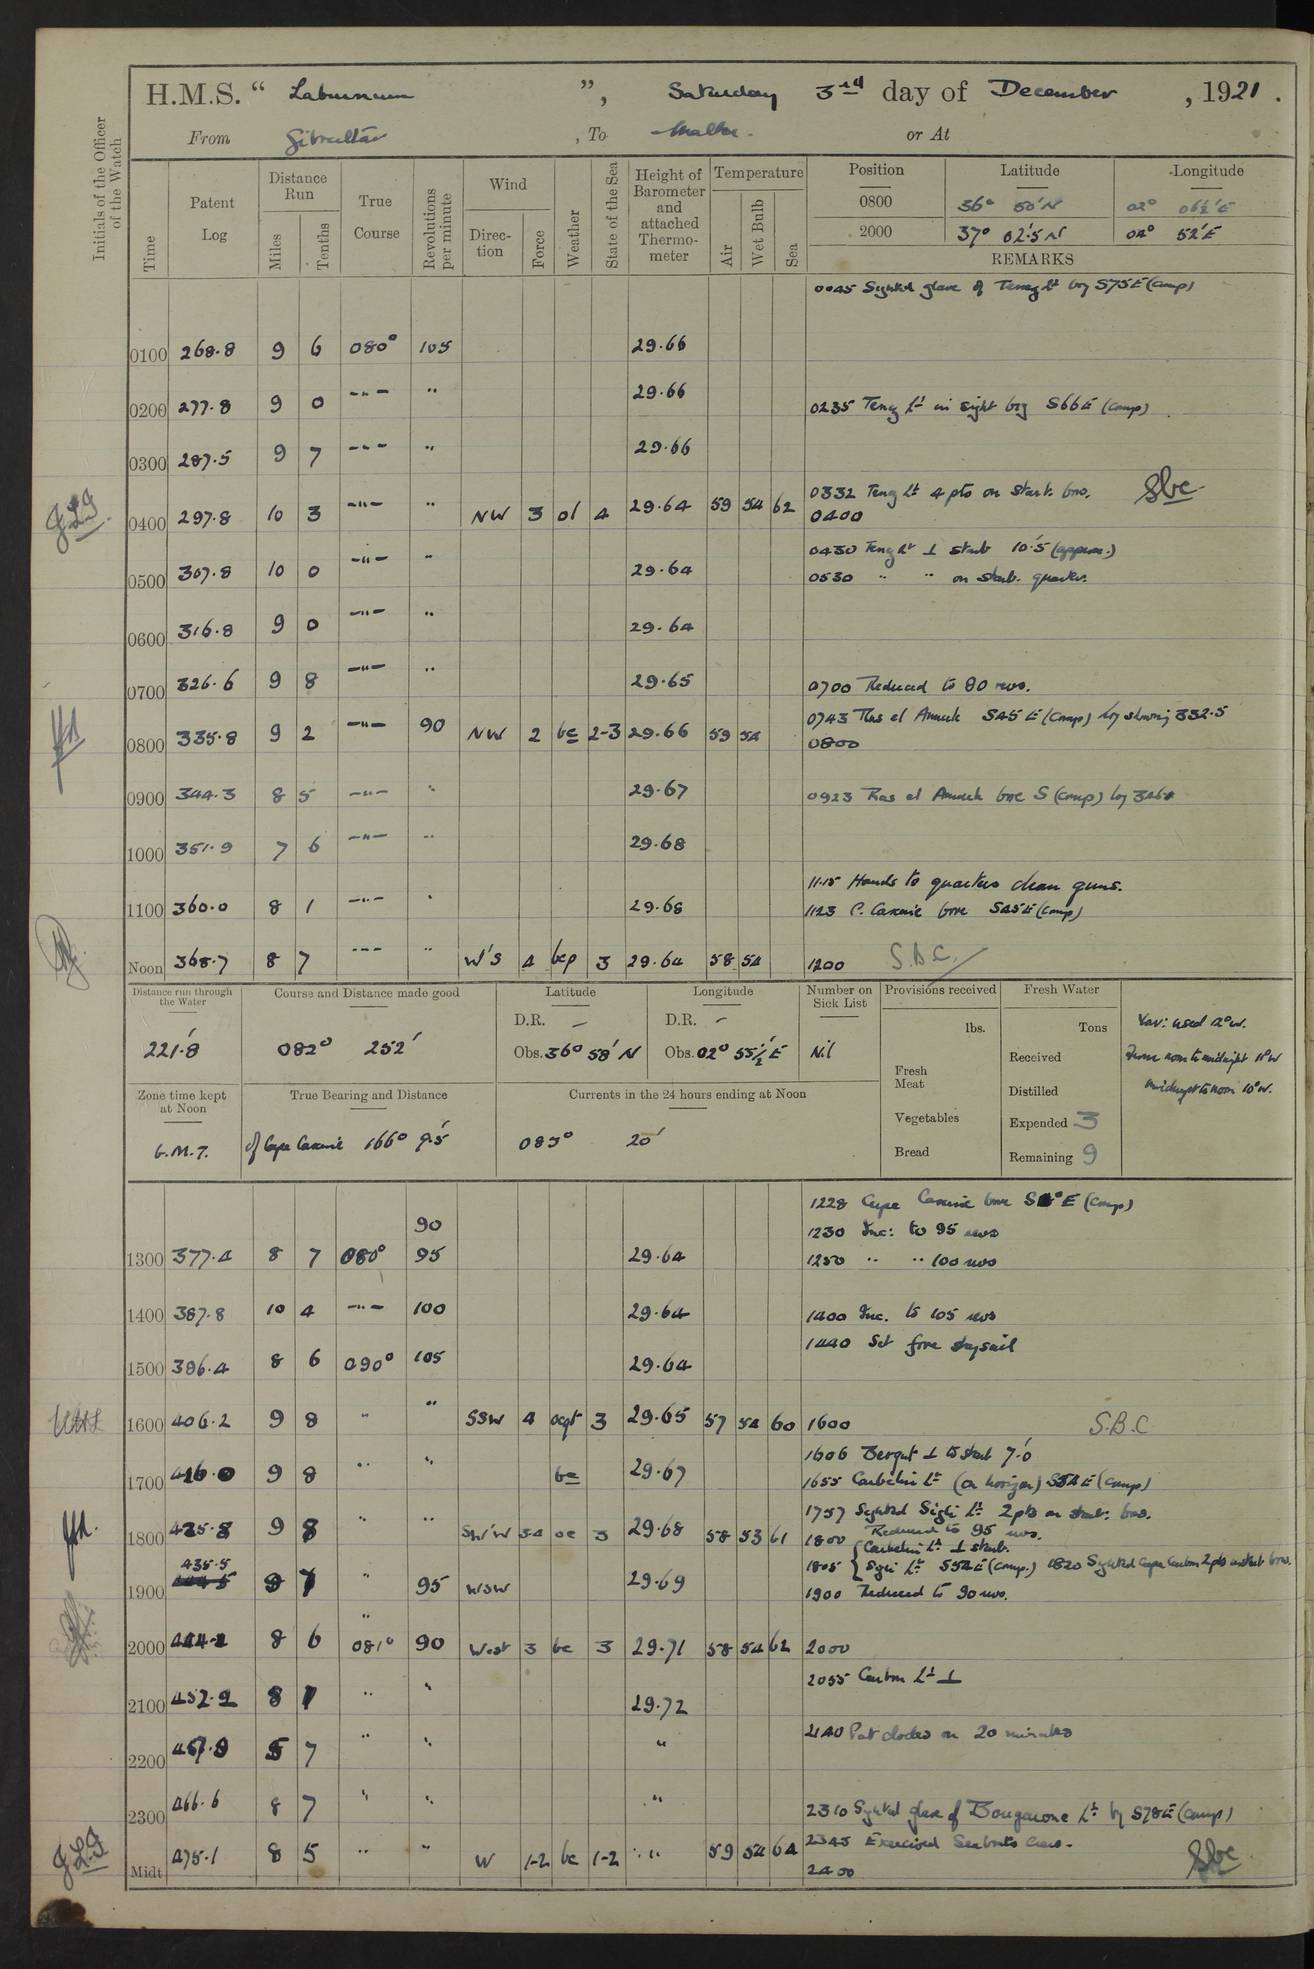 H.M.S. “ Laburnum ”, Saturday 3rd day of December, 1921.
From Gibraltar, To Malta. or At
Initials of the Officer of the Watch
Time Patent Log Distance Run Miles Tenths True Course Revolutions per minute Wind Direction Force Weather State of the Sea Height of Barometer and attached Thermometer Temperature Air Wet Bulb Sea
Position Latitude Longitude
0800 36° 50' N 02° 06½' E
2000 37° 02'.5 N 04° 52' E
REMARKS
0045 Sighted glare of Tenez Lt brg S75E (comp)
0100 268.8 9 6 080° 105 29.66
0200 277.8 9 0 -"- " 29.66
0235 Tenez Lt in sight brg S66E (comp)
0300 287.5 9 7 -"- " 29.66
0332 Tenez Lt 4 pts on starb. bow.
0400 297.8 10 3 -"- " NW 3 o1 4 29.64 59 54 62 0400
0430 Tenez Lt ⊥ starb 10'.5 (approx.)
0500 307.8 10 0 -"- " 29.64
0530 " " on starb. quarter.
0600 316.8 9 0 -"- " 29.64
0700 326.6 9 8 -"- " 29.65 0700 Reduced to 80 revs.
0743 Ras el Amuch S45E (comp) log showing 332.5
0800 335.8 9 2 -"- 90 NW 2 bc 2-3 29.66 59 54 0800
0900 344.3 8 5 -"- " 29.67 0923 Ras el Amuch bore S (comp) log
1000 351.9 7 6 -"- " 29.68
11.15 Hands to quarters clean guns.
1100 360.0 8 1 -"- " 29.68 1123 C. Caxine bore S45E (comp)
Noon 368.7 8 7 -"- " W'S 4 bcp 3 29.64 58 54 1200 S.B.C.
Distance run through the Water 221'.8
Course and Distance made good 082° 252'
Latitude D.R. — Obs. 36° 58' N
Longitude D.R. — Obs. 02° 55½' E
Number on Sick List Nil
Provisions received lbs. Fresh Meat Vegetables Bread
Fresh Water Tons Received Distilled Expended 3 Remaining 9
Var: used 12° W.
From noon to midnight 11° W
midnight to noon 10° W.
Zone time kept at Noon G.M.T.
True Bearing and Distance of Cape Caxine 166° 9'.5
Currents in the 24 hours ending at Noon 085° 20'
1228 Cape Caxine bore E (comp)
90 1230 Inc: to 95 revs
1300 377.4 8 7 080° 95 29.64 1250 " " 100 revs
1400 387.8 10 4 -"- 100 29.64 1400 Inc. to 105 revs
1440 Set fore staysail
1500 396.4 8 6 090° 105 29.64
1600 406.2 9 8 " " SSW 4 ocqt 3 29.65 57 54 60 1600 S.B.C
1606 Bengut ⊥ to starb 7'.0
1700 416.0 9 8 " " bc 29.67 1655 Corbelin Lt (on horizon) S54E (comp)
1757 Sighted Sigli Lt 2 pts on starb. bow.
1800 425.8 9 8 " " SW'W 3-4 oc 3 29.68 58 53 61 1800 Reduced to 95 revs.
Corbelin Lt ⊥ starb.
1805 Sigli Lt S52E (comp.) 1820 Sighted Cape Carbon 2 pts on starb bow.
435.5
1900 9 7 " 95 WSW 29.69 1900 Reduced to 90 revs.
2000 444.2 8 6 081° 90 West 3 bc 3 29.71 58 54 62 2000
2055 Carbon Lt ⊥
2100 452.2 8 1 " " 29.72
2140 Put clocks on 20 minutes
2200 457.9 5 7 " " "
2300 466.6 8 7 " " " 2310 Sighted glare of Bougarone Lt by S78E (comp)
2345 Exercised Seaboats crew.
Midt 475.1 8 5 " " W 1-2 bc 1-2 " 59 54 64 2400